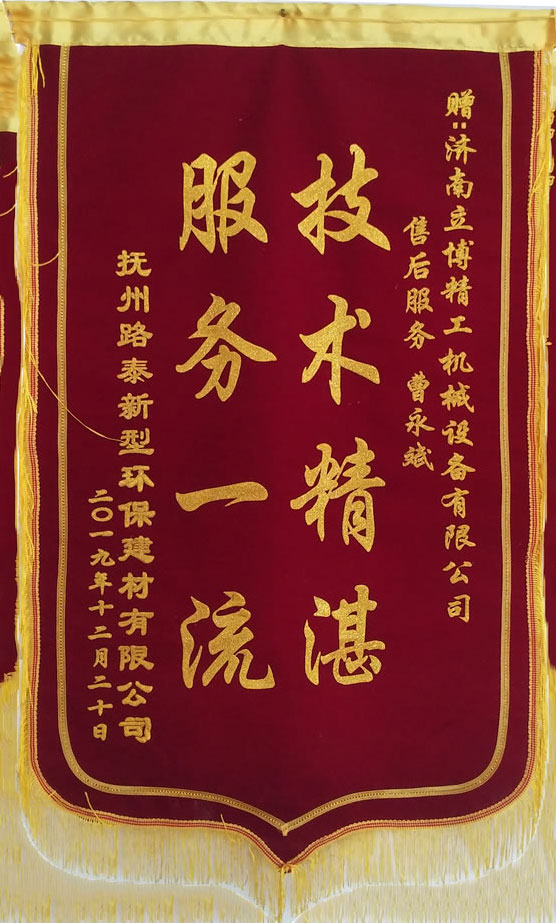 赠:济南立博精工机械设备有限公司
售后服务 曹永斌
技术精湛
服务一流
抚州路泰新型环保建材有限公司
二〇一九年十二月二十日